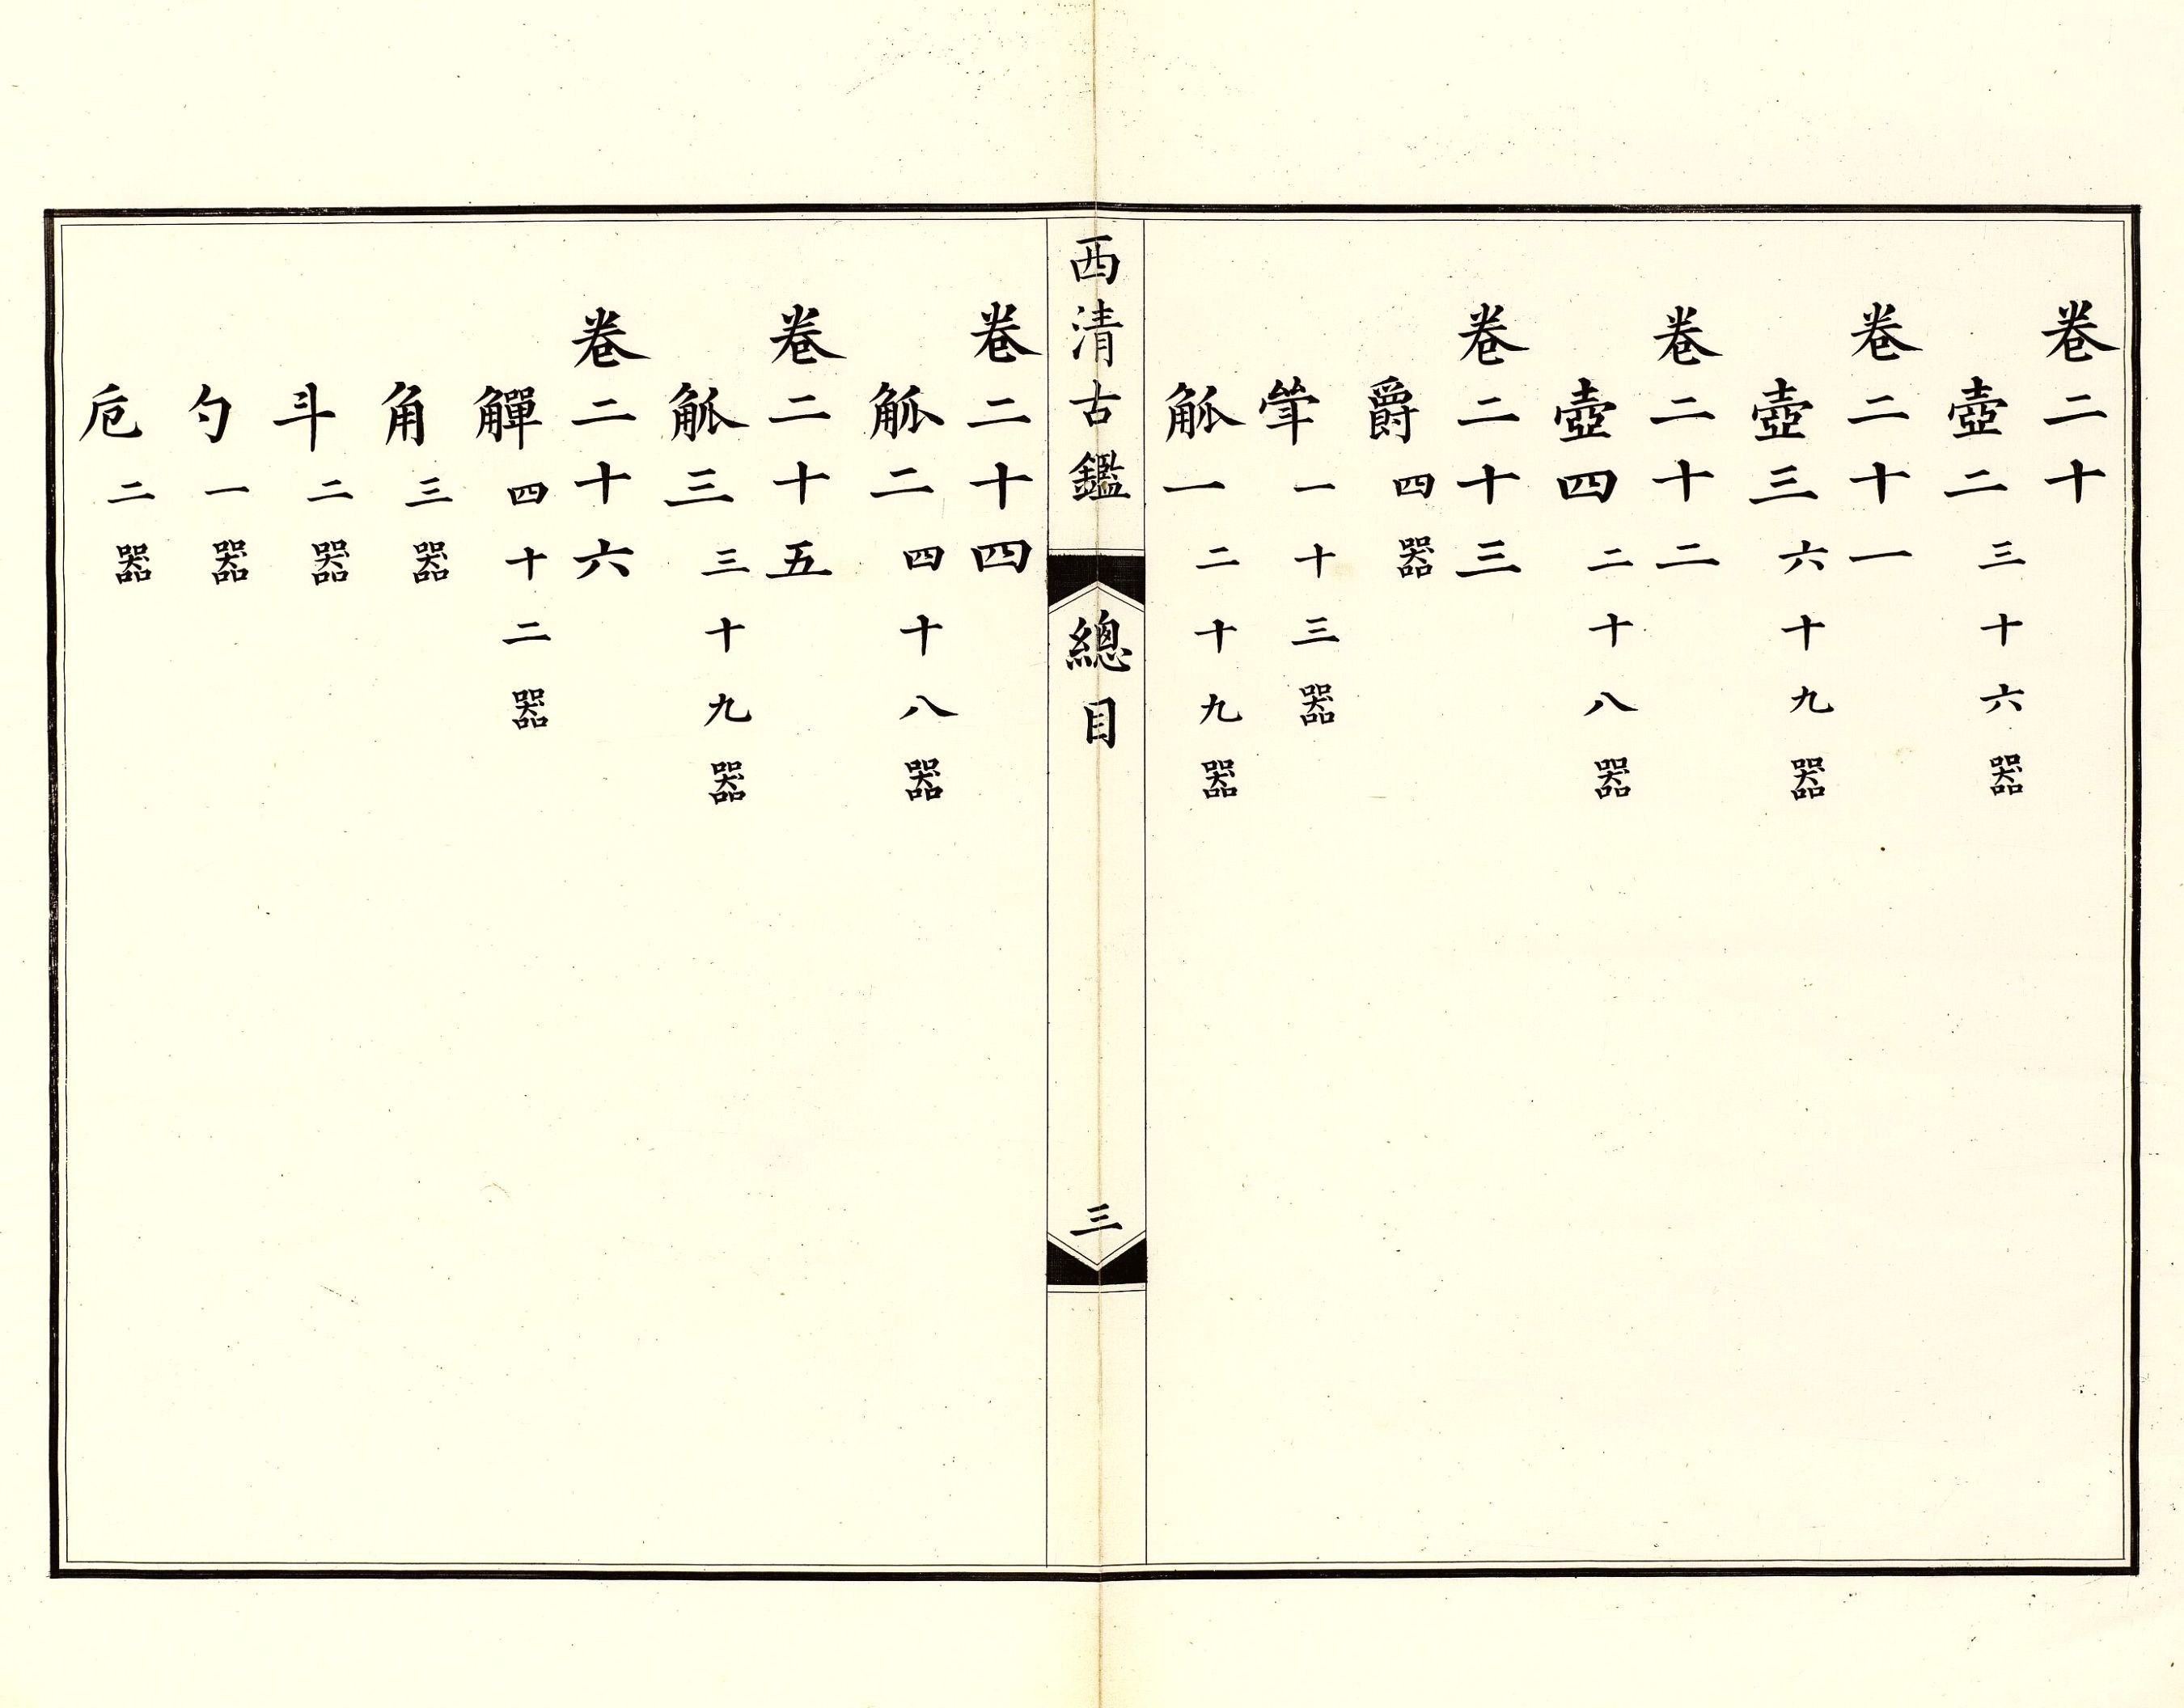 卷二十
壺二三十六器
卷二十一
壺三六十九器
卷二十二
壺四二十八器
卷二十三
爵四器
斝一十三器
觚一二十九器
西清古鑑 總目 三
卷二十四
觚二四十八器
卷二十五
觚三三十九器
卷二十六
觶四十二器
角三器
斗二器
勺一器
卮二器